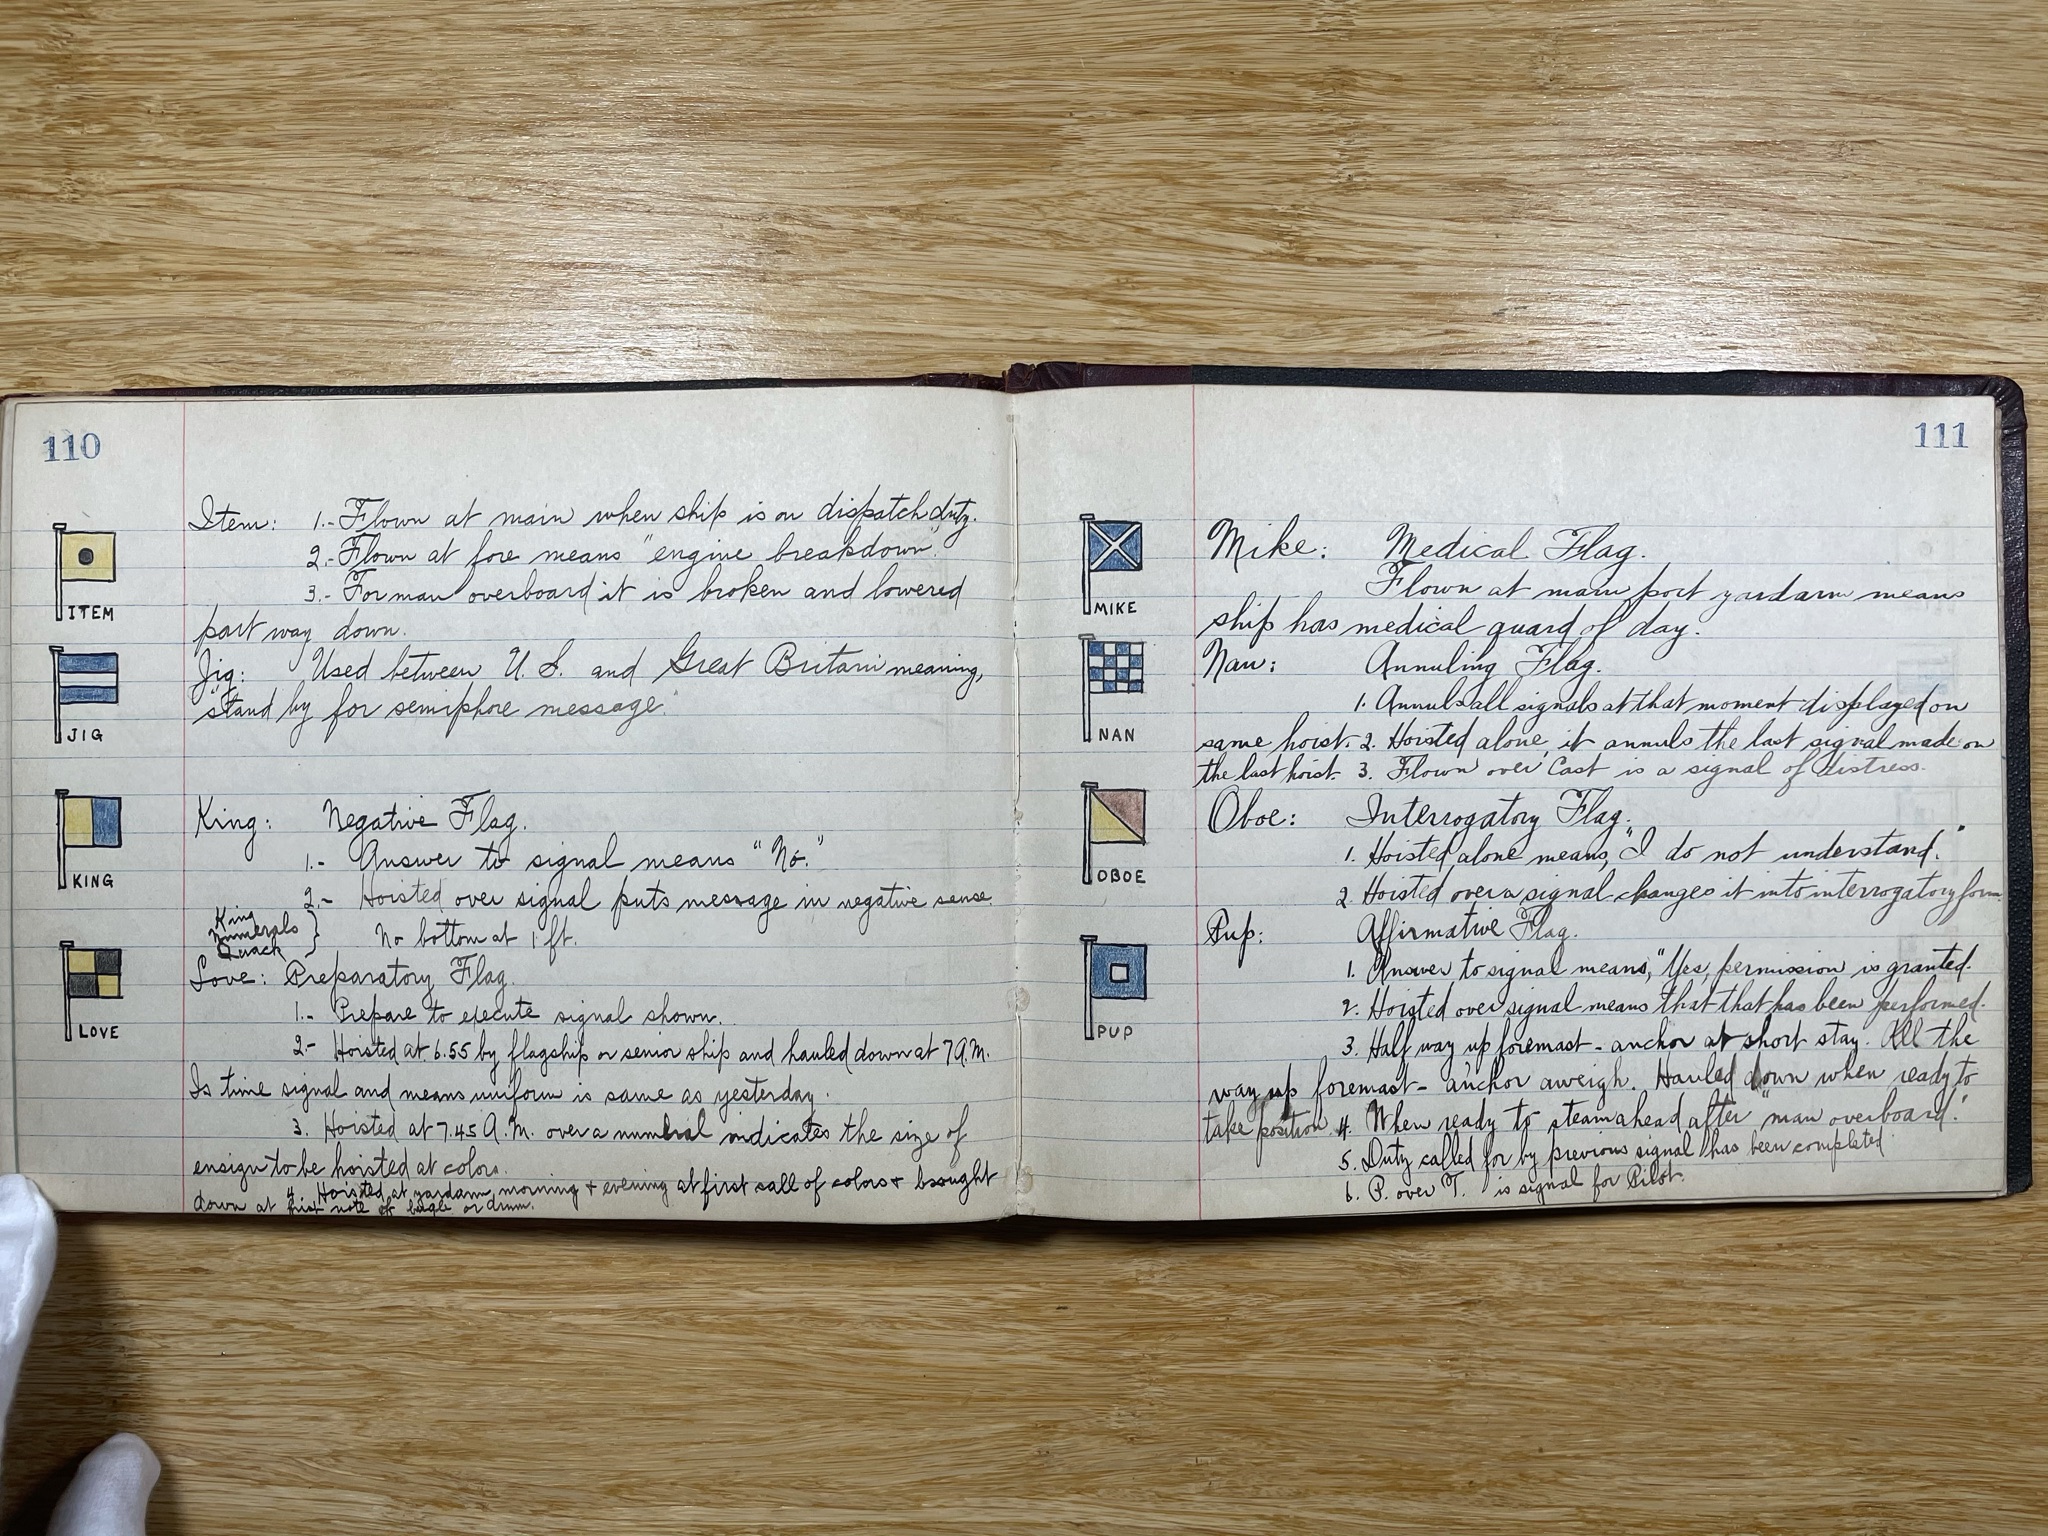 110
Item: 1.- Flown at main when ship is on dispatch duty.
2.- Flown at fore means "engine breakdown".
3.- For man overboard it is broken and lowered
part way down.
ITEM
Jig: Used between U.S. and Great Britain meaning,
"stand by for semiphore message.
JIG
King: Negative Flag.
1.- Answer to signal means "No."
2.- Hoisted over signal puts message in negative sense.
KING
King
Numerals
Quack } No bottom at 1 ft.
Love: Preparatory Flag.
1.- Prepare to execute signal shown.
LOVE
2.- Hoisted at 6.55 by flagship or senior ship and hauled down at 7 A.M.
Is time signal and means uniform is same as yesterday.
3. Hoisted at 7.45 A.M. over a numeral indicates the size of
ensign to be hoisted at colors.
4. Hoisted at yardarm morning + evening at first call of colors + brought
down at first note of bugle or drum.
111
Mike: Medical Flag.
Flown at main port yardarm means
MIKE
ship has medical guard of day.
Nan: Annuling Flag.
1. Annuls all signals at that moment displayed on
NAN
same hoist. 2. Hoisted alone, it annuls the last signal made on
the last hoist. 3. Flown over Cast is a signal of distress.
Oboe: Interrogatory Flag.
1. Hoisted alone means, "I do not understand."
OBOE
2. Hoisted over a signal changes it into interrogatory form.
Pup: Affirmative Flag.
1. Answer to signal means, "Yes, permission is granted.
2. Hoisted over signal means that that has been performed.
PUP
3. Half way up foremast - anchor at short stay. All the
way up foremast - anchor aweigh. Hauled down when ready to
take position. 4. When ready to steam ahead after "man overboard."
5. Duty called for by previous signal has been completed.
6. P. over T. is signal for Pilot.